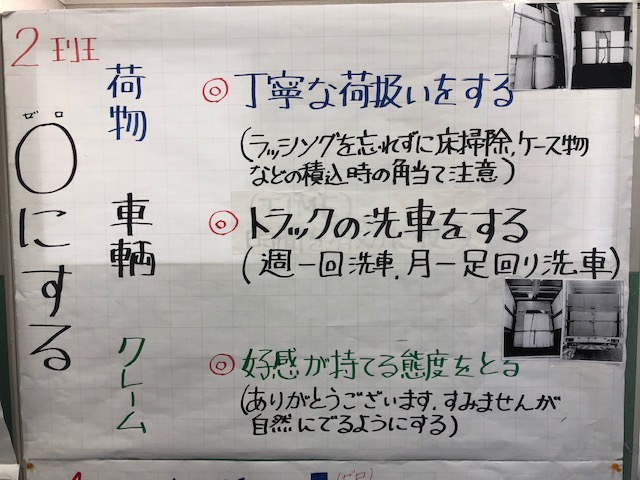 2班
荷物 車輌 クレーム
0にする
ゼロ
◎丁寧な荷扱いをする
(ラッシングを忘れずに床掃除,ケース物
などの積込時の角当て注意)
◎トラックの洗車をする
(週一回洗車,月一足回り洗車)
◎好感が持てる態度をとる
(ありがとうございます.すみませんが
自然にでるようにする)
(ゼロ)